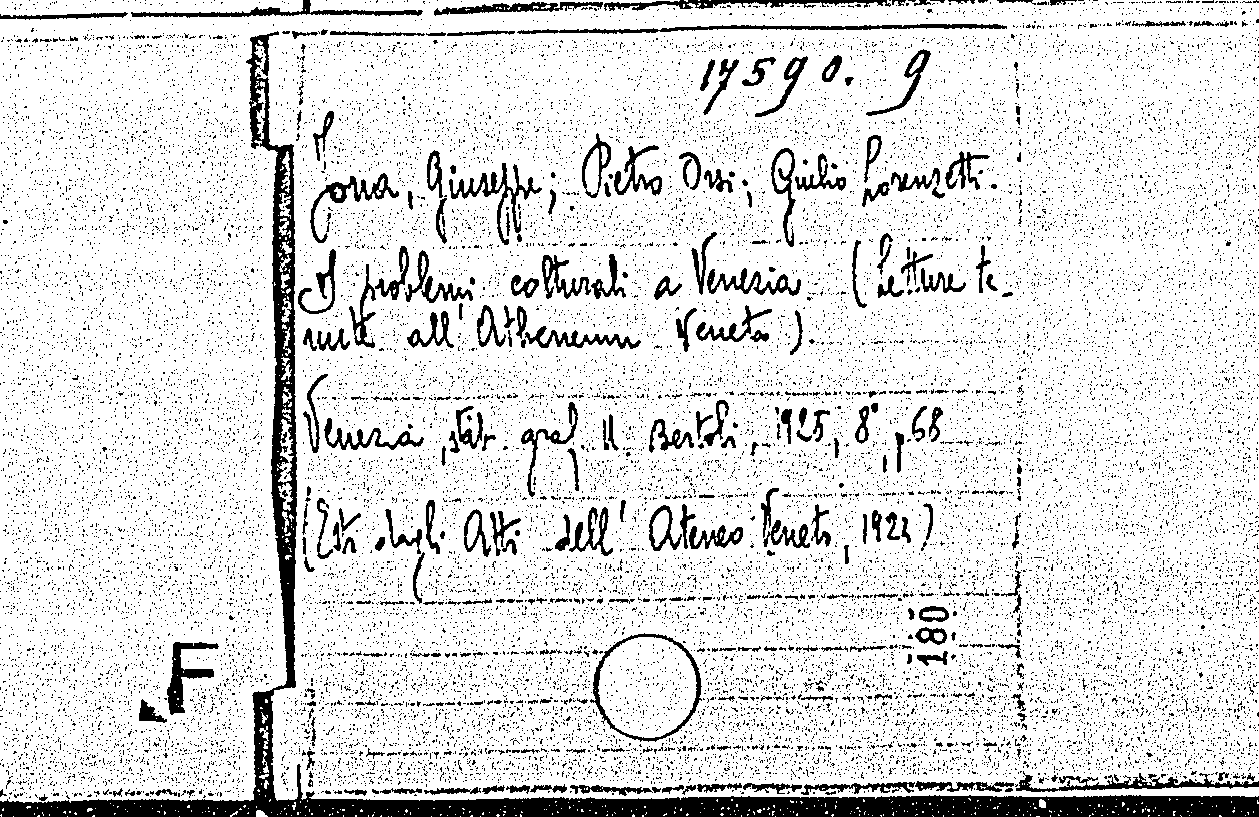 17590. 9
Jona, Giuseppe; Pietro Orsi; Giulio Lorenzetti.
I problemi colturali a Venezia (Letture te-
nute all' Atheneum Veneto).
Venezia, stab. graf. U. Bertoli, 1925, 8°, p. 68
(Estr. dagli Atti dell' Ateneo Veneto, 1924)
180
F